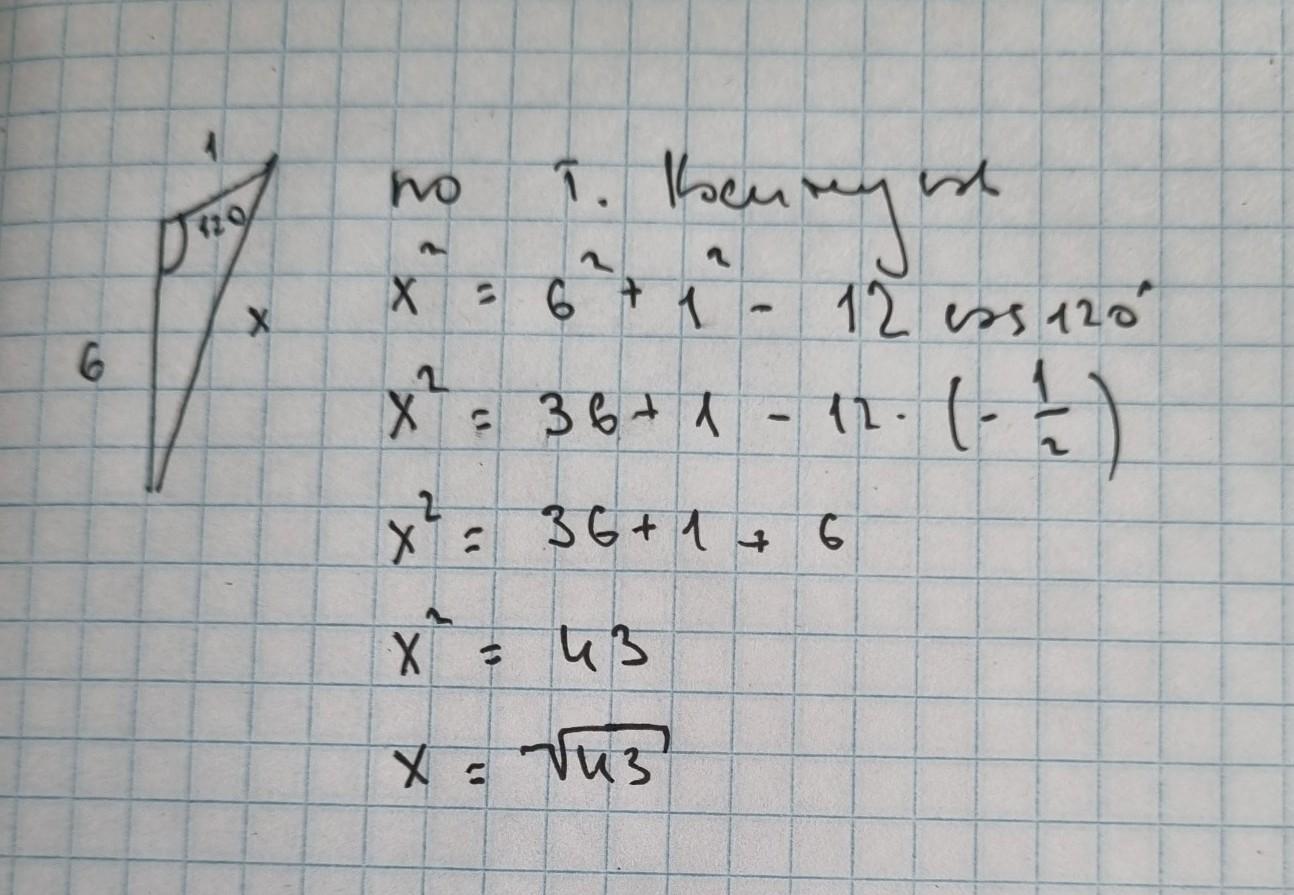 1
120
6
x
по т. Косинусов
x² = 6² + 1² - 12 cos 120°
x² = 36 + 1 - 12 · (- 1/2)
x² = 36 + 1 + 6
x² = 43
x = √43